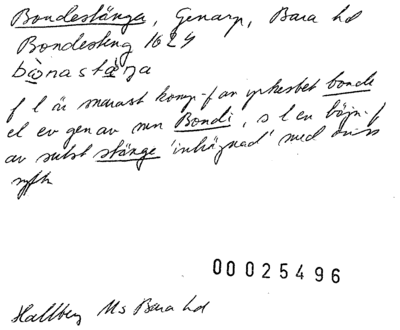 Bondestånga, Genarp, Bara hd
Bondesteng 1624
bònastånga
f l är snarast komp.f av yrkesbet bonde
el ev gen av mn Bondi, s l en böjn.f
av subst stånge 'inhägnad' med oviss
syft
00025496
Hallberg Ms Bara hd